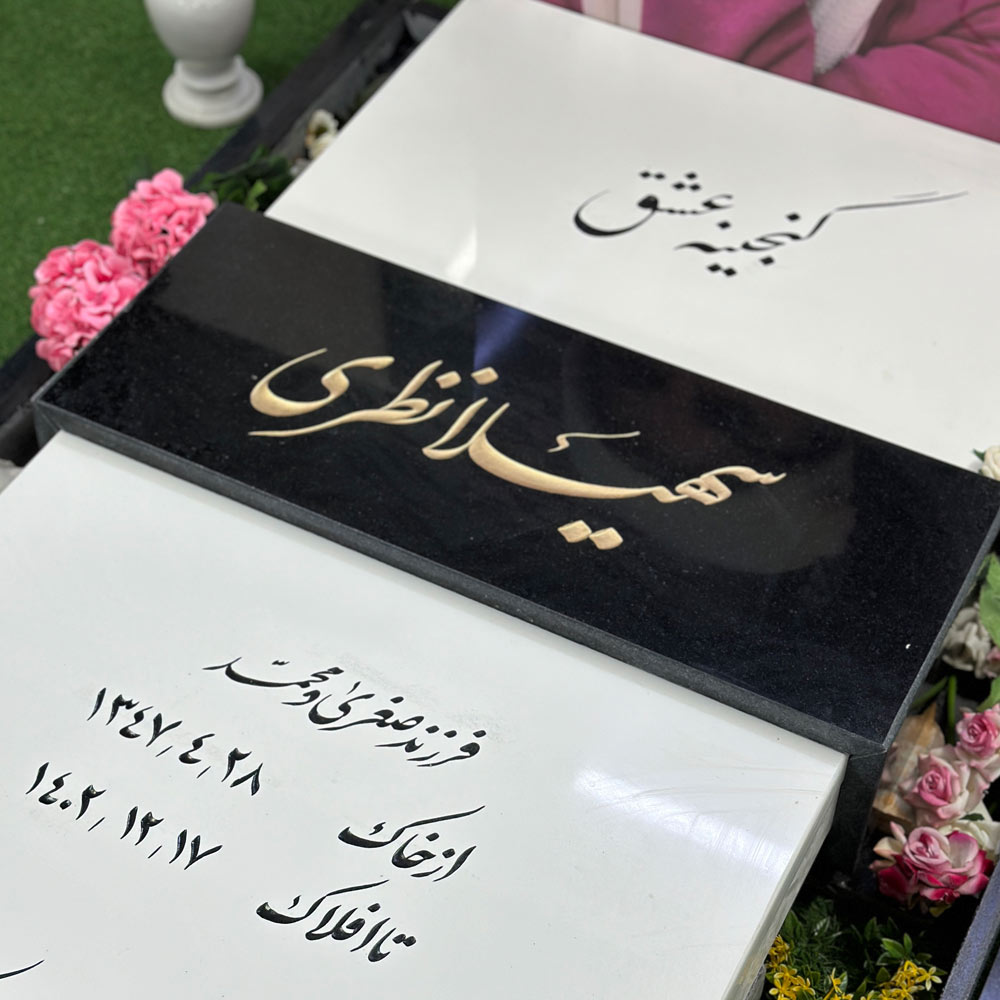 گنجینه عشق
سهیلا نظری
فرزند صغری و محمّد
از خاک ۱۳۴۷٫۴٫۲۸
تا افلاک ۱۴۰۲٫۱۲٫۱۷